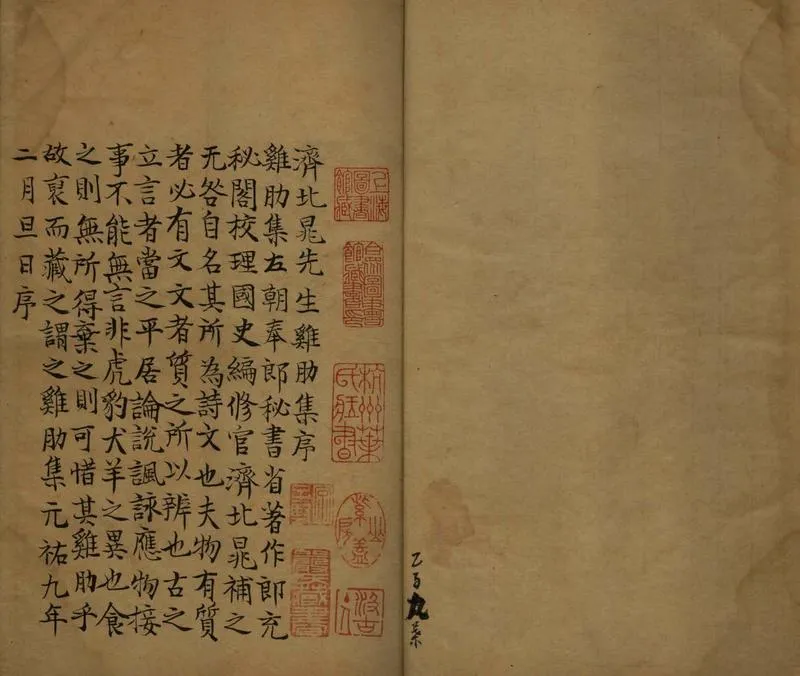 上海圖書館藏
合眾圖書館藏書印
杭州葉氏藏書
濟北晁先生雞肋集序
雞肋集左朝奉郎秘書省著作郎充
秘閣校理國史編修官濟北晁補之
无咎自名其所為詩文也夫物有質
者必有文文者質之所以辨也古之
立言者當之平居論說諷詠應物接
事不能無言非虎豹犬羊之異也食
之則無所得棄之則可惜其雞肋乎
故裒而藏之謂之雞肋集元祐九年
二月旦日序